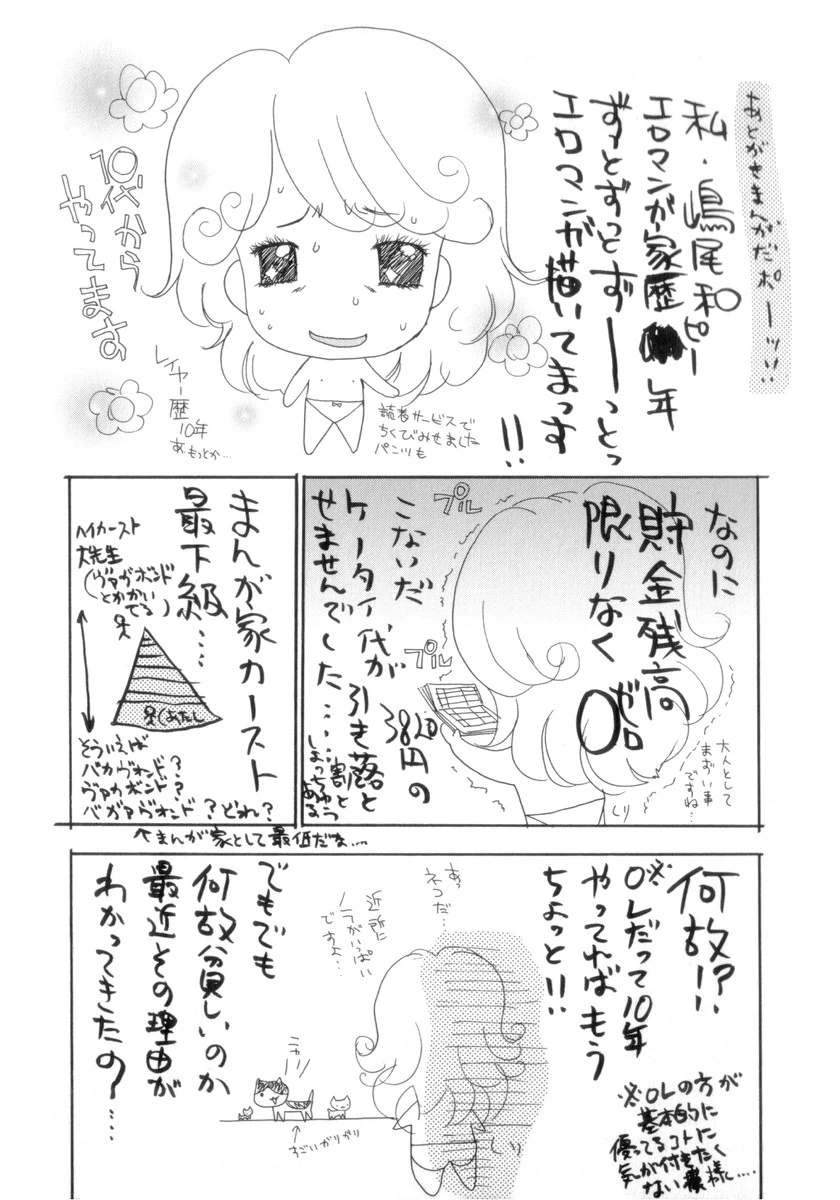 あとがきまんがだポーッ!!
私・嶋尾和ピー
エロマンガ家歴 年
ずっとずっとずーーっとっ
エロマンガ描いてまっす
!!
10代から
やってます
レイヤー歴
10年
あ、もっとか…
読者サービスで
ちくびみせました
パンツも
なのに
貯金残高
限りなく
0
ゼロ
プル
プル
こないだ
ケータイ代が
3820円の
引き落と
せませんでした……
割と
しょっちゅう
ある
大人として
まずい事
ですね…
まんが家カースト
最下級…
ハイカースト
大先生
(ヴァガボンド
とかかい
てる)
(あたし
そういえば
バカヴォンド?
ヴァガボンド?
バガァヴォンド?どれ?
↑まんが家として最低だな…
何故!?
※OLだって10年
やってればもう
ちょっと!!
※OLの方が
基本的に
優ってるコトに
気が付きたく
ない模様…
あっ
ネコだ…
近所に
ノラがいっぱい
ですよ…
ニャー
すごいがりがり
でもでも
何故貧しいのか
最近その理由が
わかってきたの……